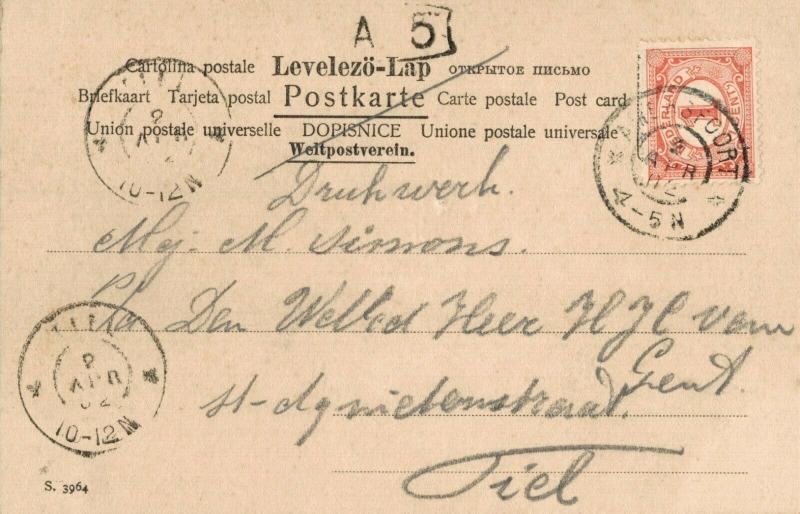 A 5
Cartolina postale Levelezö-Lap ОТКРЫТОЕ ПИСЬМО
Briefkaart Tarjeta postal Postkarte Carte postale Post card
Union postale universelle DOPISNICE Unione postale universale
Weltpostverein.
NEDERLAND 1 CENT
AMERSFOORT
2 APR 02
4-5N
TIEL
2 APR
10-12N
Drukwerk.
Mej. M. Simons.
Den Weled Heer H J C van
Gent.
St-Agnietenstraat.
Tiel
TIEL
2 APR 02
10-12N
S. 3964